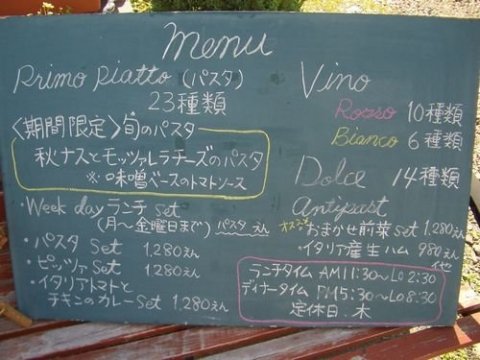 menu
Primo piatto (パスタ)
23種類
〈期間限定〉旬のパスタ
秋ナスとモッツァレラチーズのパスタ
※味噌ベースのトマトソース
・Week day ランチ set
(月〜金曜日まで)
・パスタ set 1,280えん
・ピッツァ set 1,280えん
・イタリアトマトと
チキンのカレーset 1,280えん
Vino
Rosso 10種類
Bianco 6種類
Dolce 14種類
antipast
おまかせ前菜set 1,280えん
・イタリア産生ハム 980えん
ランチタイム AM11:30〜Lo2:30
ディナータイム PM5:30〜Lo8:30
定休日:木